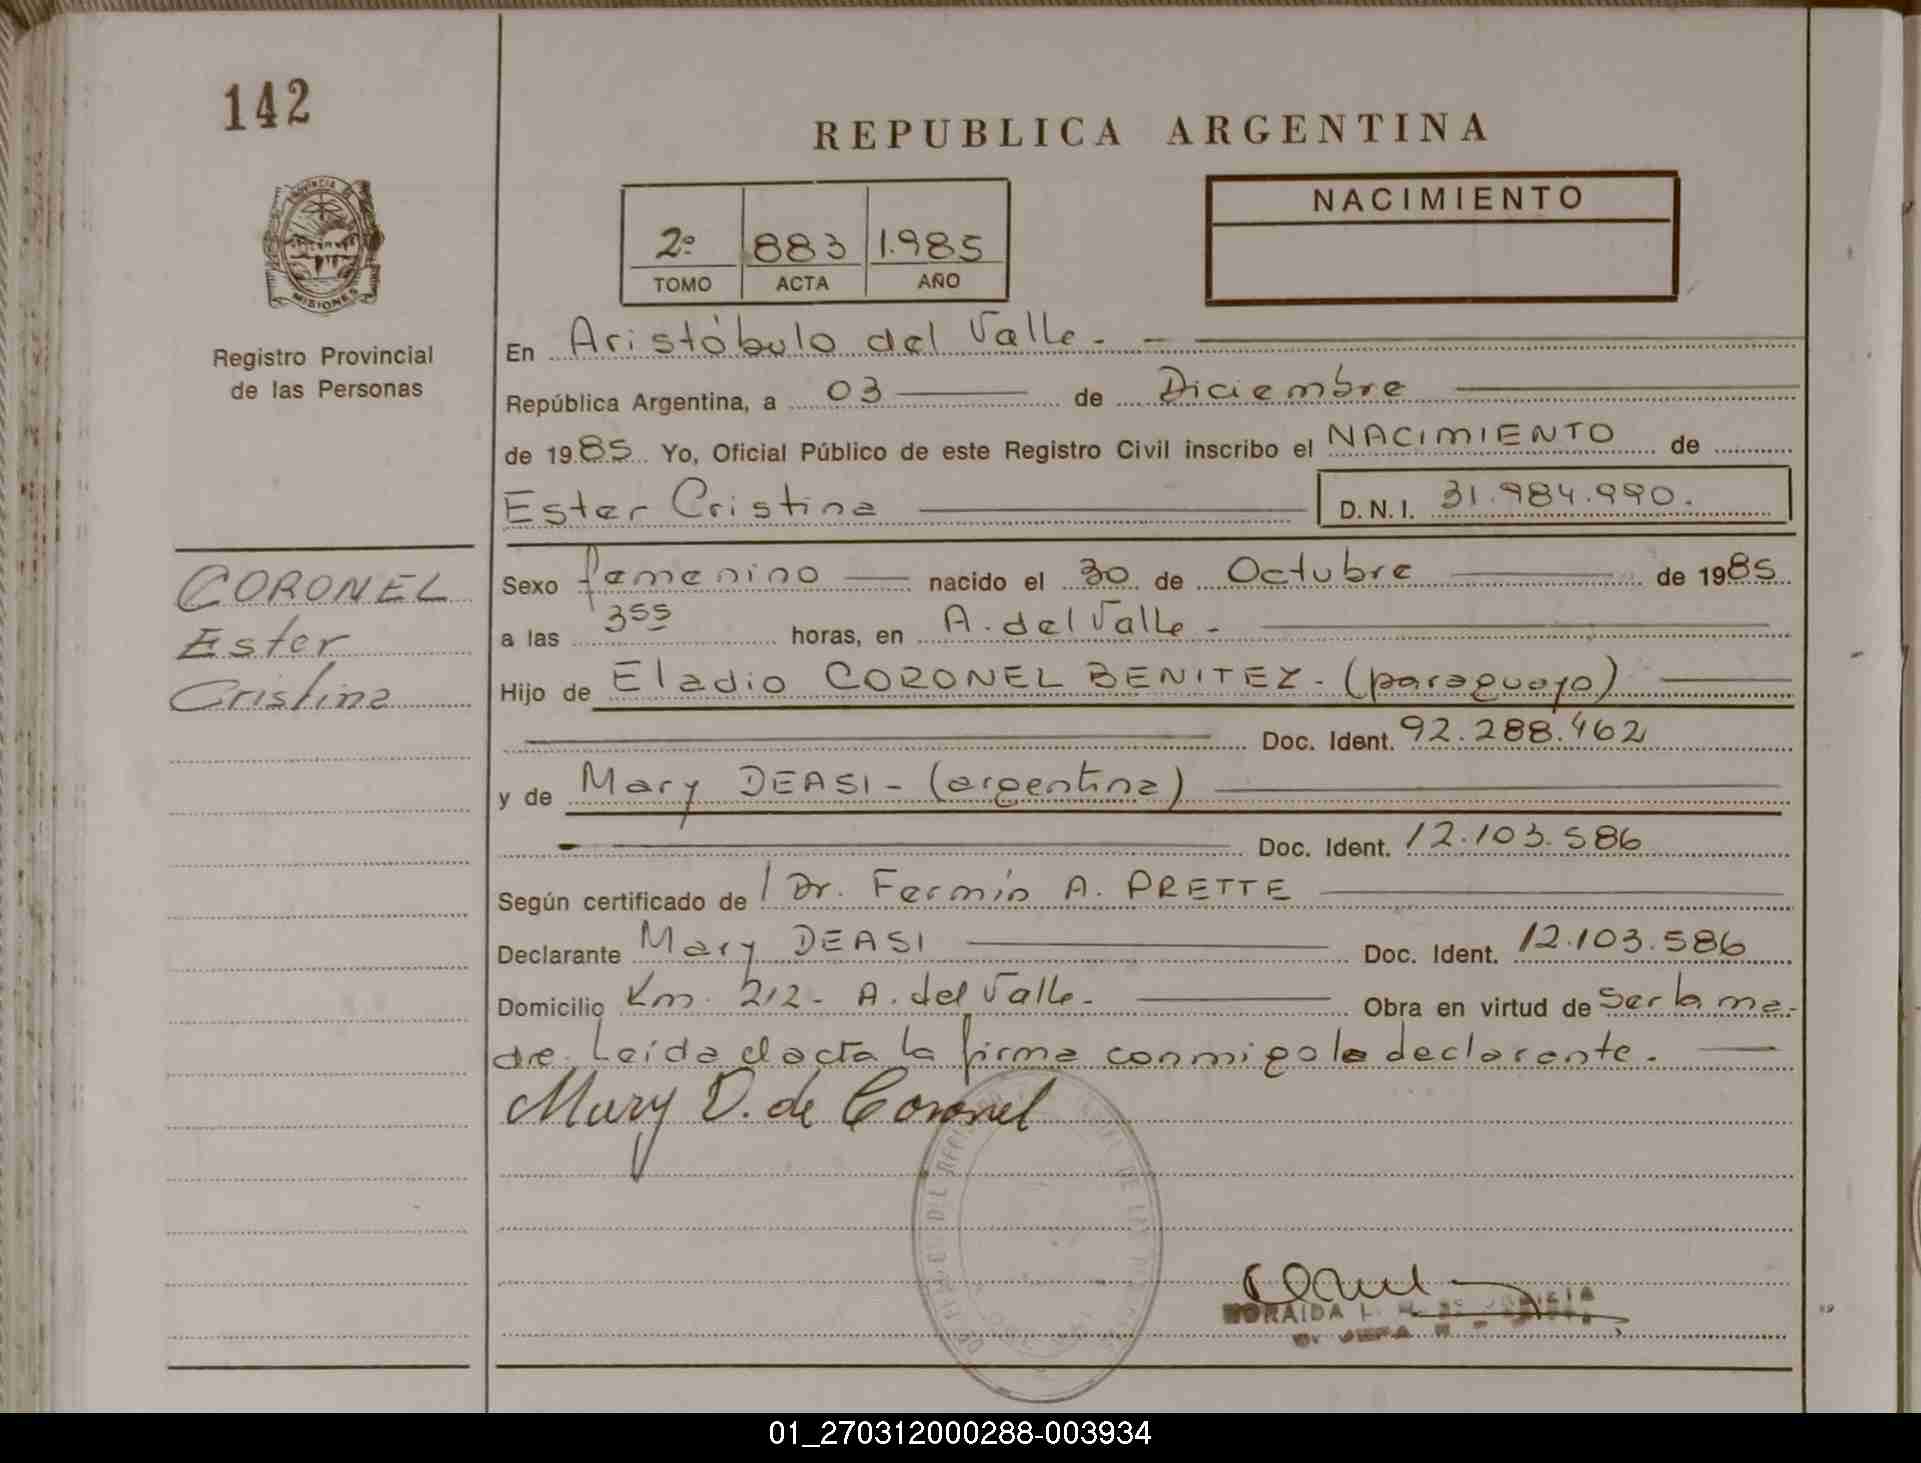 142
REPUBLICA ARGENTINA
PROVINCIA DE
MISIONES
Registro Provincial
de las Personas
2º 883 1.985
TOMO ACTA AÑO
NACIMIENTO
En Aristóbulo del Valle. -
República Argentina, a 03 de Diciembre
de 1985 Yo, Oficial Público de este Registro Civil inscribo el NACIMIENTO de
Ester Cristina D.N.I. 31.984.990.
CORONEL
Ester
Cristina
Sexo femenino nacido el 30 de Octubre de 1985
a las 3 55 horas, en A. del Valle -
Hijo de Eladio CORONEL BENITEZ - (paraguayo)
Doc. Ident. 92.288.462
y de Mary DEASI - (argentina)
Doc. Ident. 12.103.586
Según certificado de Dr. Fermín A. PRETTE
Declarante Mary DEASI Doc. Ident. 12.103.586
Domicilio Km. 212 - A. del Valle. Obra en virtud de ser la ma-
dre. Leída el acta la firma conmigo la declarante.
Mary D. de Coronel
01_270312000288-003934